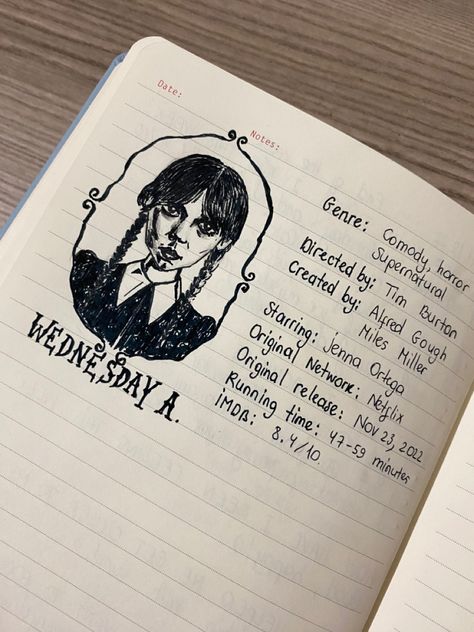 Date:
Notes:
Genre: Comody, horror
Supernatural
Directed by: Tim Burton
Created by: Alfred Gough
Miles Miller
Starring: Jenna Ortga
Original Network: Netflix
Original release: Nov 23, 2022
Running time: 47-59 minutes
IMDB: 8.4/10.
WEDNESDAY A.